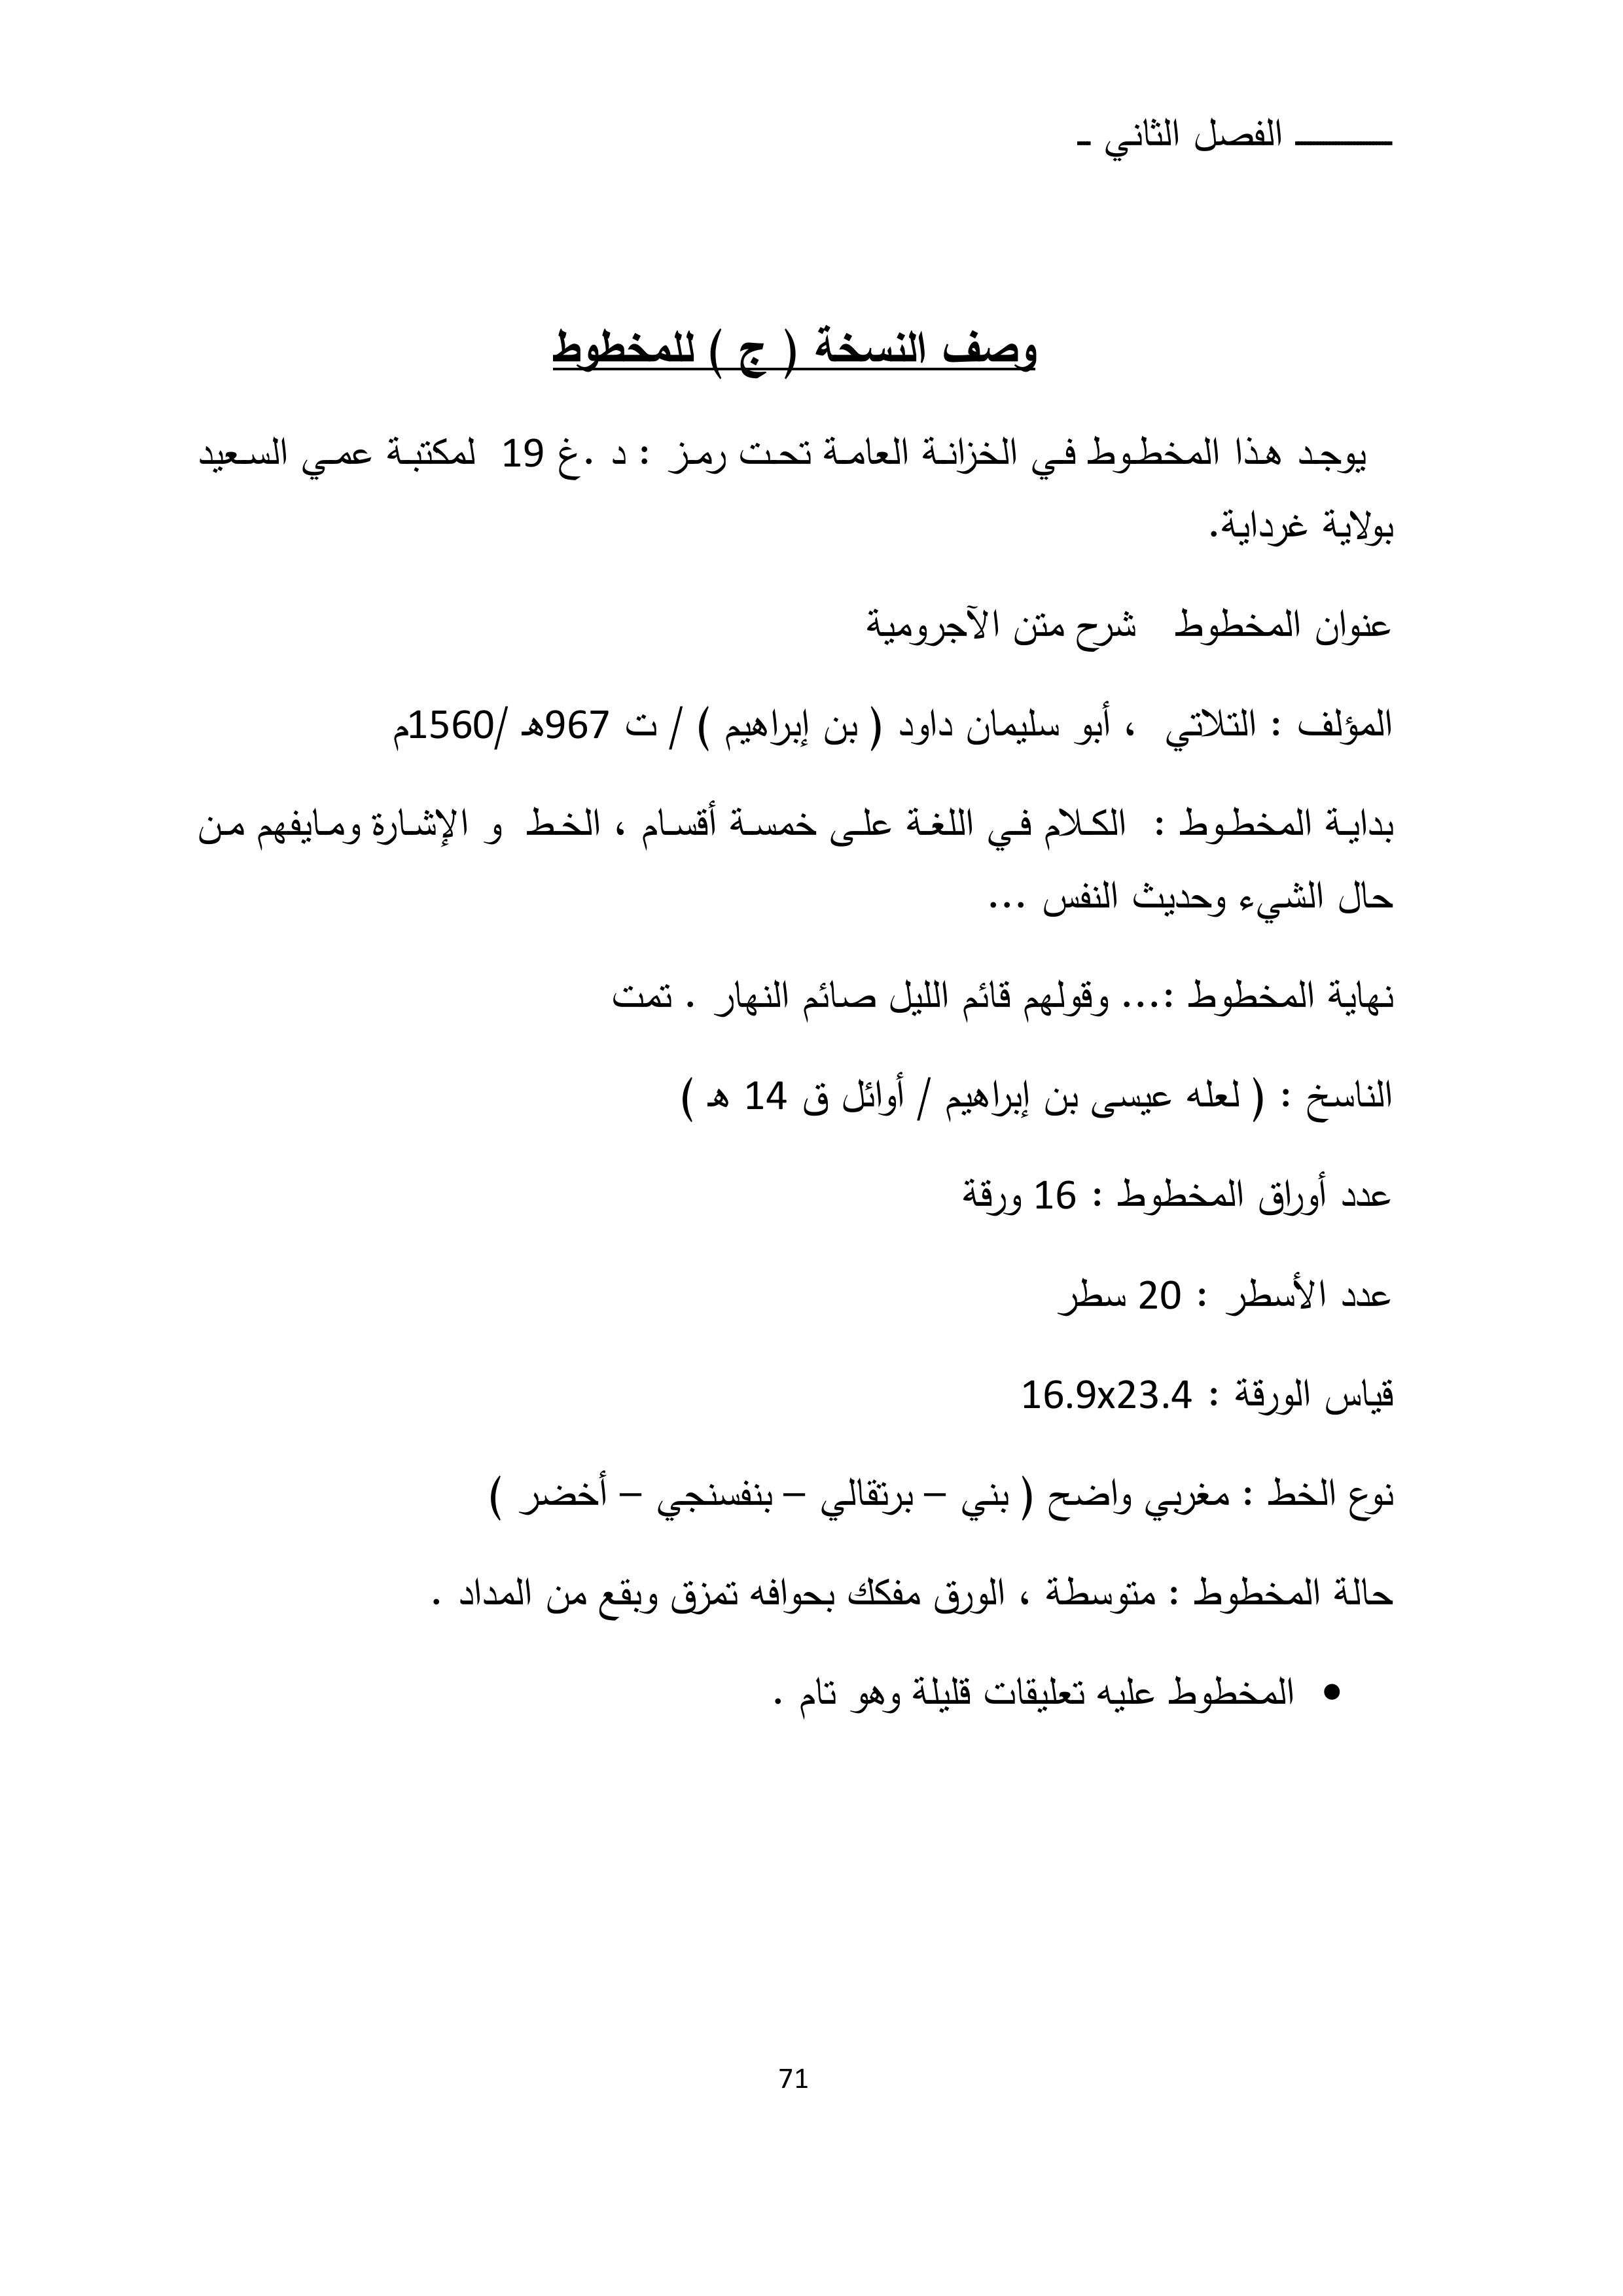 ـــــــــ الفصل الثاني ـ
وصف النسخة ( ج ) للمخطوط
يوجد هذا المخطوط في الخزانة العامة تحت رمز : د .غ 19 لمكتبة عمي السعيد
بولاية غرداية.
عنوان المخطوط شرح متن الآجرومية
المؤلف : التلاتي ، أبو سليمان داود ( بن إبراهيم ) / ت 967هـ /1560م
بداية المخطوط : الكلام في اللغة على خمسة أقسام ، الخط و الإشارة ومايفهم من
حال الشيء وحديث النفس ...
نهاية المخطوط :... وقولهم قائم الليل صائم النهار . تمت
الناسخ : ( لعله عيسى بن إبراهيم / أوائل ق 14 هـ )
عدد أوراق المخطوط : 16 ورقة
عدد الأسطر : 20 سطر
قياس الورقة : 16.9x23.4
نوع الخط : مغربي واضح ( بني – برتقالي – بنفسنجي – أخضر )
حالة المخطوط : متوسطة ، الورق مفكك بحوافه تمزق وبقع من المداد .
• المخطوط عليه تعليقات قليلة وهو تام .
71